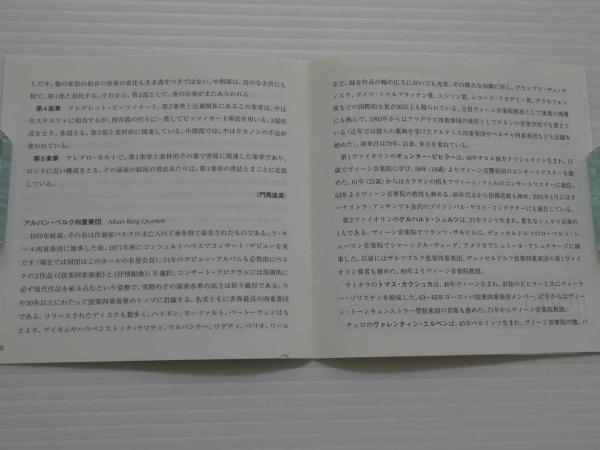 しだす。他の楽器の和音の発展の変化もきき逃すべきではない。中間部は、鳥のなき声にも
似て、第1部と対比する。それから、第3部として、夜の音楽がまたあらわれる。
第4楽章 アレグレット・ピッツィカート。第2楽章と近親関係にあるこの楽章は、やは
りスケルツォに相当するが、弱音器の代りに一貫してピッツィカート奏法を用いる。3部形
式をとり、各部とも、第2部と素材的に関連している。中間部では、やはりカノンの手法が
使われている。
第5楽章 アレグロ・モルトで。第1楽章と素材的その他で密接に関連した楽章であり、
ロンドに近い構成をとる。その最後の結尾の書法あたりは、第1楽章の書法とまことに近似
している。
(門馬直美)
アルバン・ベルク四重奏団 Alban Berg Quartett
1970年結成。その名は作曲家ベルクの未亡人の了承を得て命名されたものである。ラ・サ
ール四重奏団に師事した後、1971年秋にコンツェルトハウスでコンサート・デビューを果
たす(現在では同団はこのホールの名誉会員)。74年のデビュー・アルバムも必然的にベル
クの2作品(《弦楽四重奏曲》と《抒情組曲》)を選択。コンサート・プログラムには原則的に
必ず現代作品を組み込むという姿勢で、実際のその演奏水準の高さは折り紙付である。今
や30年以上にわたって弦楽四重奏界のトップに君臨する、名実ともに世界最高の四重奏団
である。リリースされたディスクも数多く、ハイドン、モーツァルト、ベートーヴェンはも
とより、アイネムやハウベンストック=ラマティ、ウルバンナー、リゲティ、ベリオ、リーム
など、録音作品の幅の広さにおいても充実。その偉大な功績に対し、グランプリ・デュ・デ
ィスク、ドイツ・シャルプラッテン賞、エジソン賞、レコード・アカデミー賞、グラモフォン
賞などの国際的な賞が30以上も贈られている。全員ヴィーン音楽院教授として後進の指導
にも熱心で、1993年からはアマデウス四重奏団の後任としてケルンの音楽学校でも教えて
いる(近年では彼らの薫陶を受けたアルテミス四重奏団やベルチャ四重奏団なども活躍を
始めた)。初来日は79年。以来、来日を重ねている。
第1ヴァイオリンのギュンター・ピヒラーは、40年チロル地方クフシュタイン生まれ。15
歳でヴィーン音楽院に学び、58年(18歳)よりヴィーン交響楽団のコンサートマスターを務
めた。61年(21歳)からはカラヤンの招きでヴィーン・フィルのコンサートマスターに就任。
63年よりヴィーン音楽院の教授も務める。80年代末から指揮活動も始め、2001年4月にはオ
ーケストラ・アンサンブル金沢のプリンシパル・ゲスト・コンダクターにも就任した。
第2ヴァイオリンのゲルハルト・シュルツは、51年リンツ生まれ。著名なシュルツ兄弟の1
人である。ヴィーン音楽院でフランツ・サモヒルに、デュッセルドルフのローベルト・シ
ューマン音楽院でシャーンドル・ヴェーグ、アメリカでシュミール・アシュケナージに師
事した。以前にはザルツブルク弦楽四重奏団、デュッセルドルフ弦楽四重奏団の第1ヴァイ
オリン奏者も務めた。80年よりヴィーン音楽院教授。
ヴィオラのトマス・カクシュカは、40年ヴィーン生まれ。旧知のピヒラーと共にヴィーナ
ー・ゾリステンを結成した。63〜65年ヨーロッパ弦楽四重奏団メンバー。67年からはヴィー
ン・トーンキュンストラー管弦楽団の首席も務めた。71年からヴィーン音楽院教授。
チェロのヴァレンティン・エルベンは、45年ペルミッツ生まれ。ヴィーン音楽院の後、パ